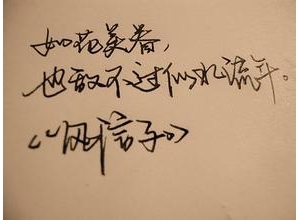 如花美眷，
也敌不过似水流年。
《》